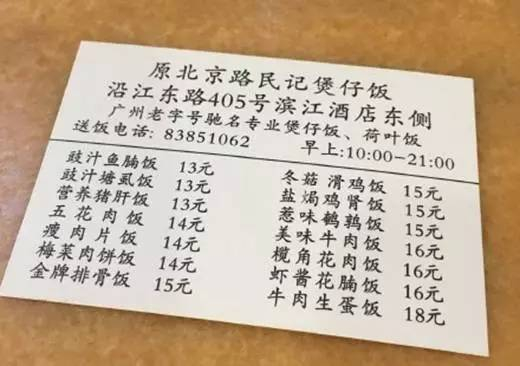 原北京路民记煲仔饭
沿江东路405号滨江酒店东侧
广州老字号驰名专业煲仔饭、荷叶饭
送饭电话: 83851062 早上:10:00-21:00
豉汁鱼腩饭 13元
豉汁塘虱饭 13元
营养猪肝饭 13元
五花肉饭 14元
瘦肉片饭 14元
梅菜肉饼饭 14元
金牌排骨饭 15元
冬菇滑鸡饭 15元
盐焗鸡肾饭 15元
惹味鹌鹑饭 15元
美味牛肉饭 16元
榄角花肉饭 16元
虾酱花腩饭 16元
牛肉生蛋饭 18元